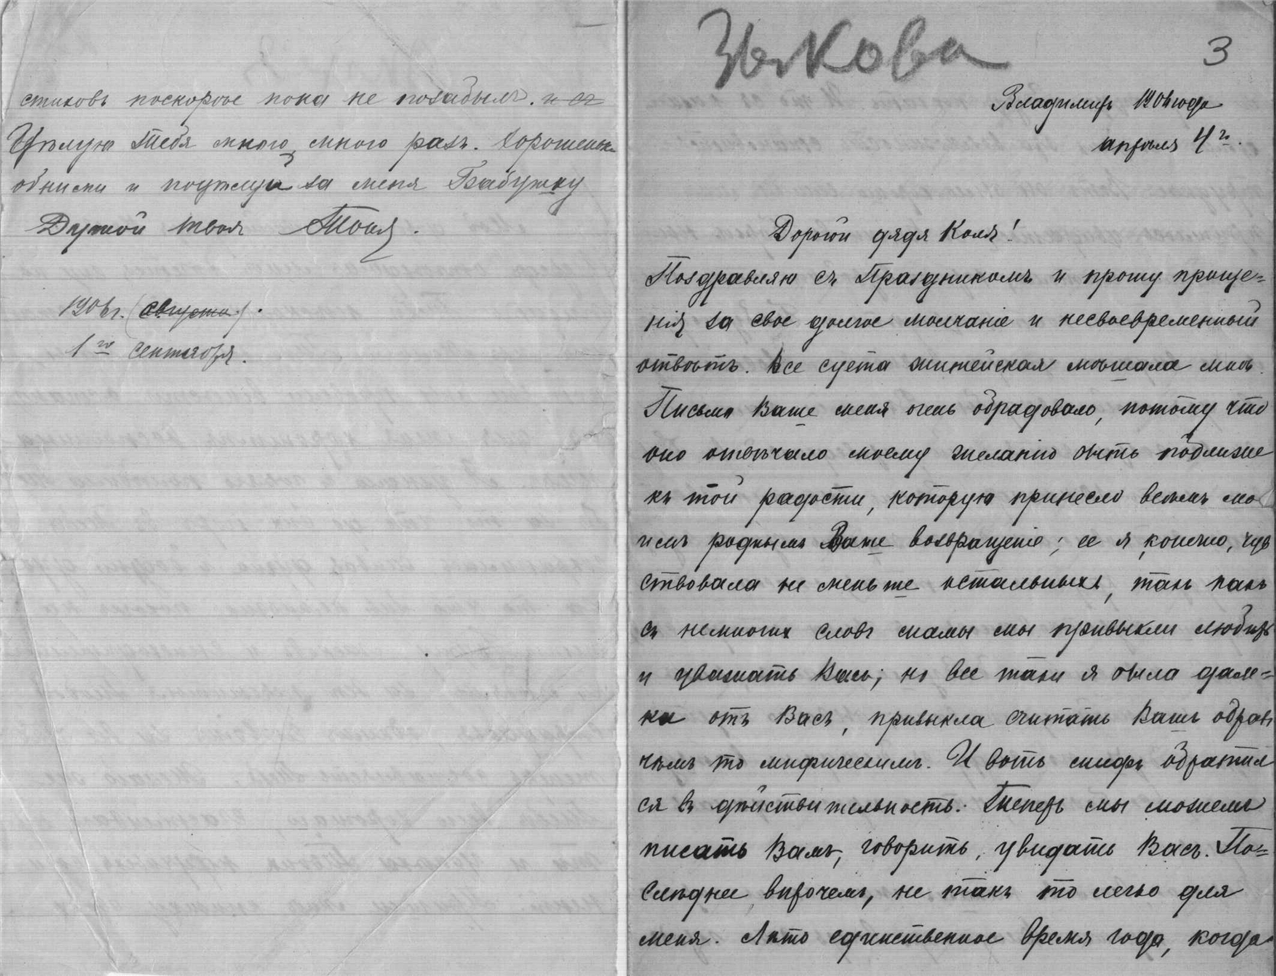 стиховъ поскорѣе пока не позабылъ. и ея
Цѣлую Тебя много, много разъ. Хорошень-
обними и поцѣлуй за меня Бабушку
Душой твоя Тоня.
1906 г. (августа).
1го сентября.
Зыкова
3
Владимиръ 1906 года
апрѣля 4го.
Дорогой дядя Коля!
Поздравляю съ Праздникомъ и прошу проще=
нія за свое долгое молчаніе и несвоевременный
отвѣтъ. Все суета житейская мѣшала мнѣ.
Письмо Ваше меня очень обрадовало, потому что
оно отвѣчало моему желанію быть поближе
къ той радости, которую принесло всѣмъ мо
имъ роднымъ Ваше возвращеніе; ее я, конечно, чув
ствовала не меньше остальныхъ, такъ какъ
съ немногих словъ мамы мы привыкли любить
и уважать Васъ; но все таки я была дале=
ка отъ Васъ, привыкла считать Вашъ образъ
чѣмъ то мифическимъ. И вотъ мифъ обратил
ся въ дѣйствительность. Теперь мы можемъ
писать Вамъ, говорить, увидать Васъ. По=
слѣднее, впрочемъ, не такъ то легко для
меня. Лѣто единственное время года, когда